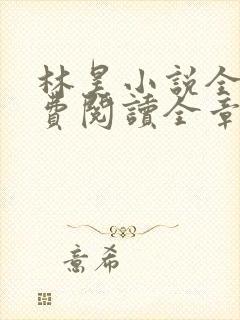 林昊小説全
費閱讀全章
意希